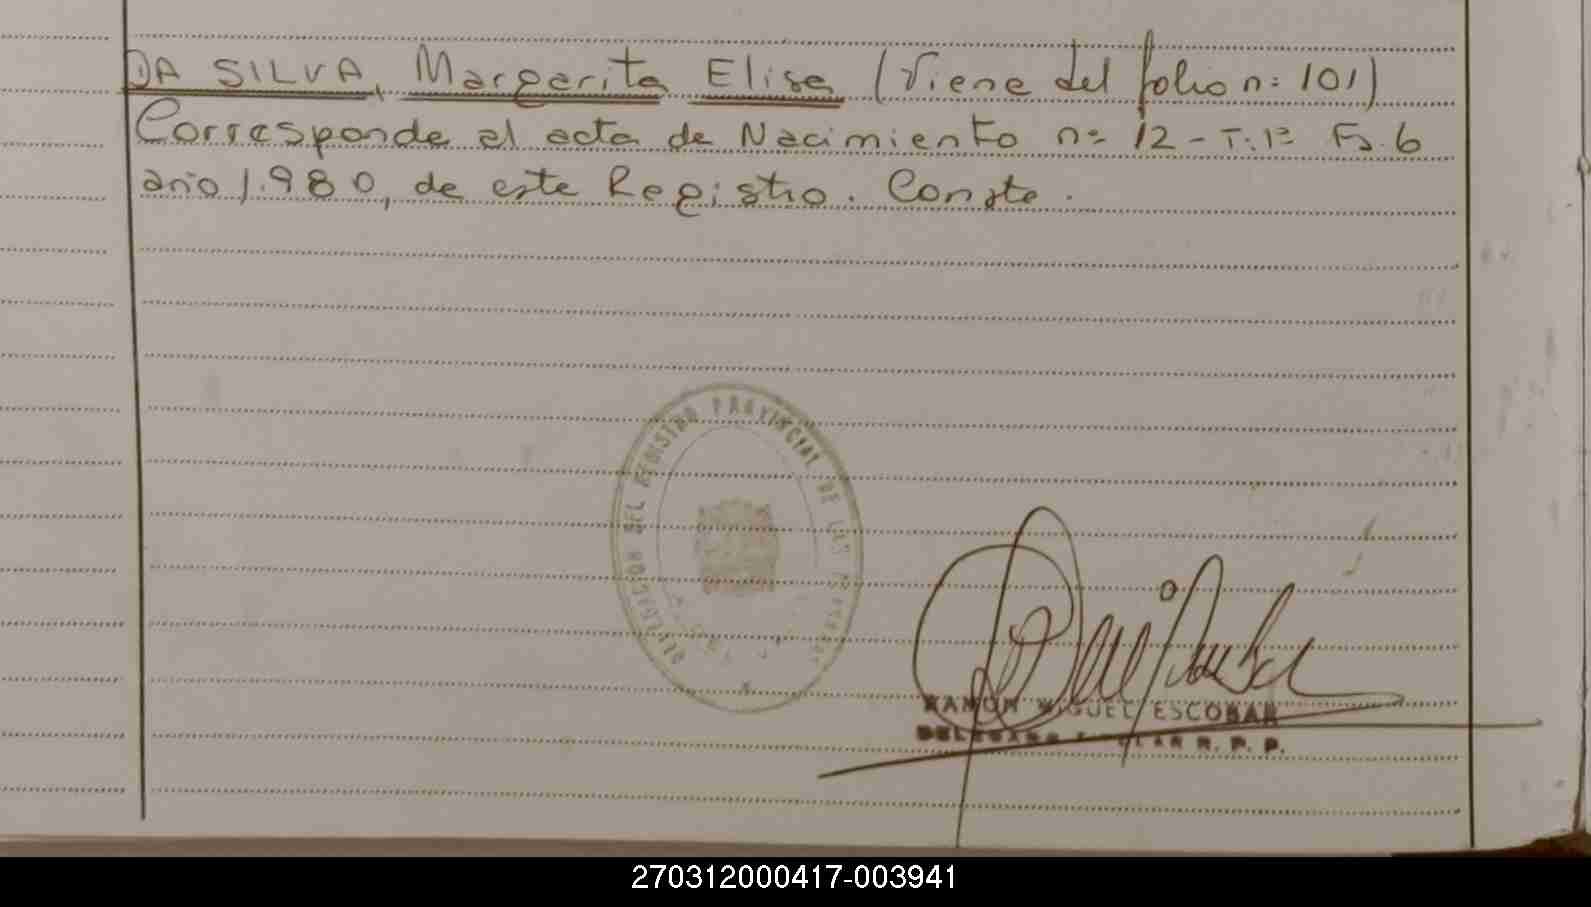 DA SILVA, Margarita Elisa (Viene del folio nº 101)
Corresponde al acta de Nacimiento nº 12 - T. 1º Fº. 6
año 1.980, de este Registro. Conste.
DELEGACION DEL REGISTRO PROVINCIAL DE LAS PERSONAS
RAMON MIGUEL ESCOBAR
DELEGADO TITULAR R. P. P.
270312000417-003941